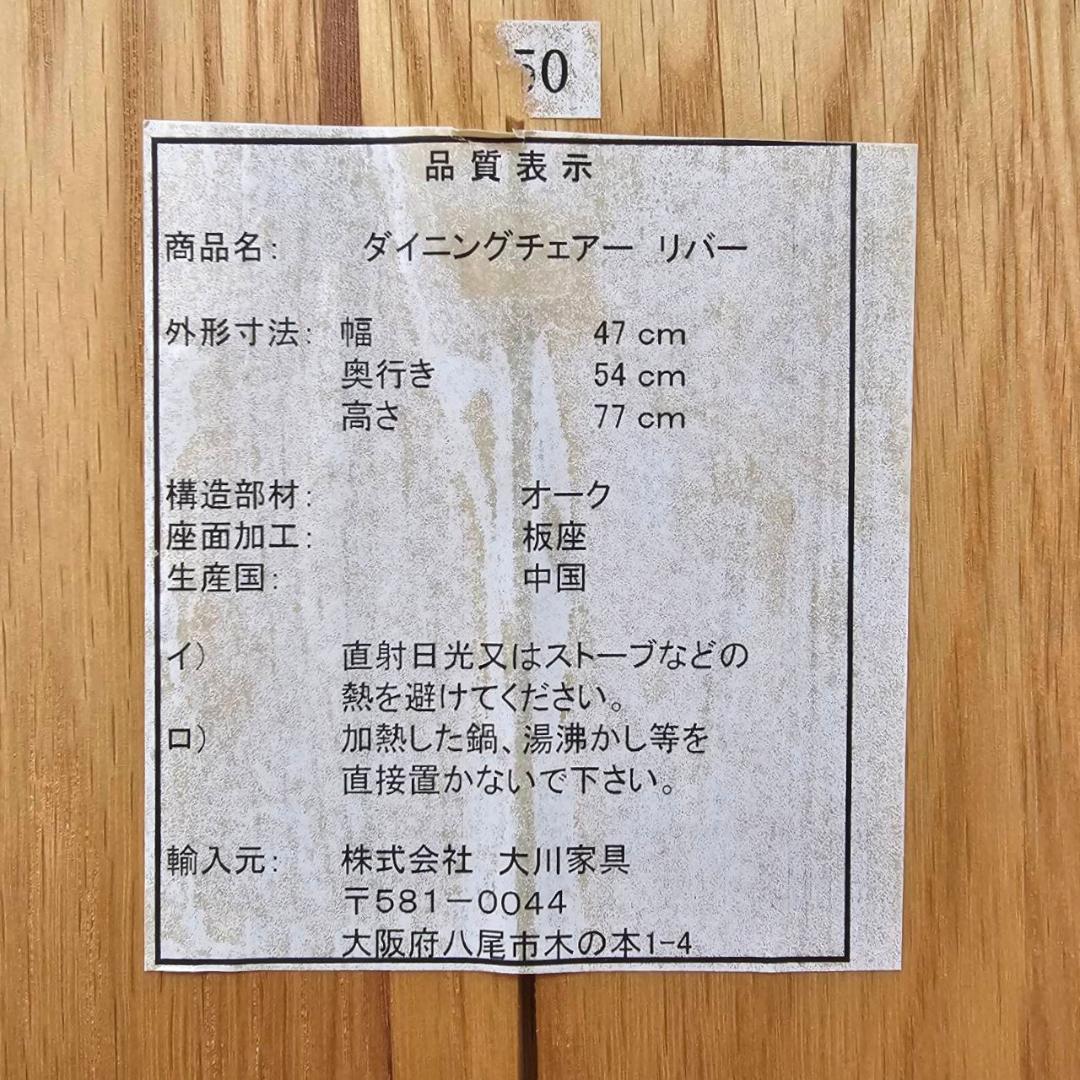 50
品質表示
商品名: ダイニングチェアー リバー
外形寸法: 幅 47 cm
奥行き 54 cm
高さ 77 cm
構造部材: オーク
座面加工: 板座
生産国: 中国
イ) 直射日光又はストーブなどの
熱を避けてください。
ロ) 加熱した鍋、湯沸かし等を
直接置かないで下さい。
輸入元: 株式会社 大川家具
〒581-0044
大阪府八尾市木の本1-4